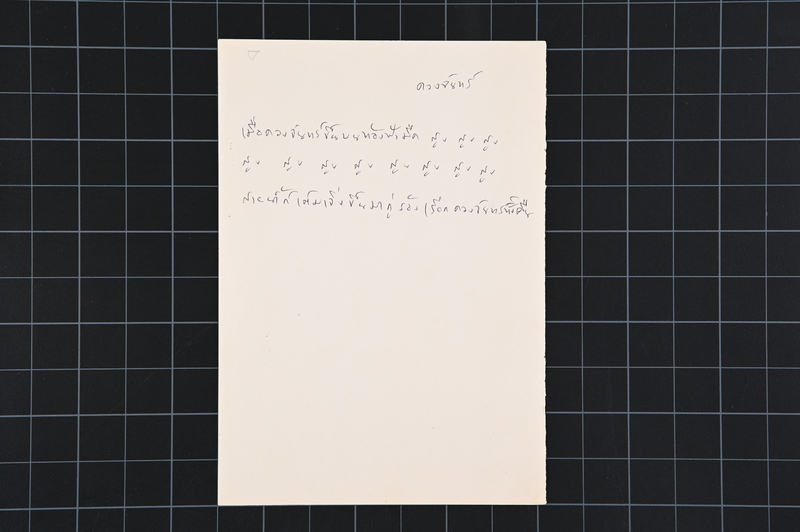 ดวงจันทร์
เมื่อดวงจันทร์ขึ้นบนท้องฟ้ามืด สูง สูง สูง
สูง สูง สูง สูง สูง สูง สูง สูง
สายน้ำก็ ขึ้นมากู่ร้อง เรียก ดวงจันทร์ทั้งคืน